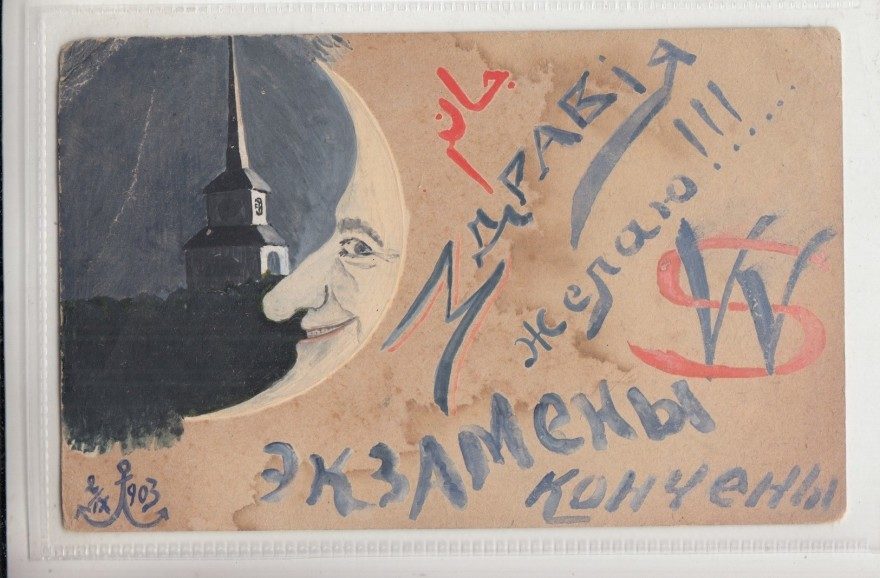 Здравія
желаю!!!......
SW
экзамены
кончены
2/IX 1903